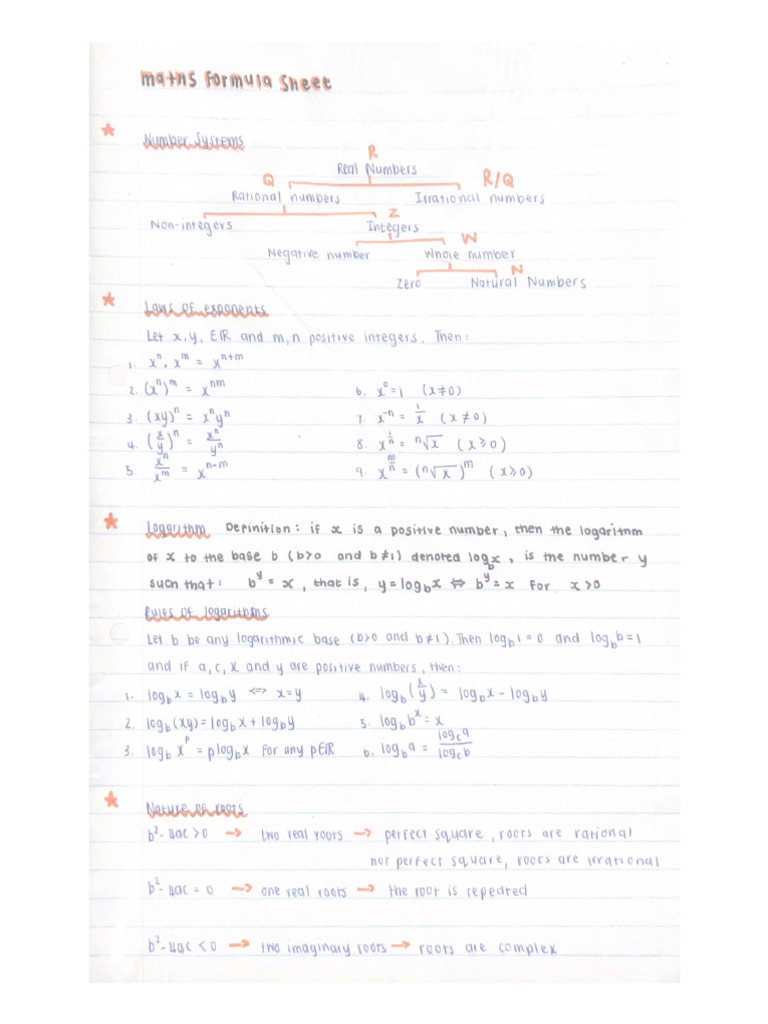 maths formula sheet
Number Systems
R
Real Numbers
Q R/Q
Rational numbers Irrational numbers
Z
Non-integers Integers
W
Negative number Whole number
N
Zero Natural Numbers
Laws of exponents
Let x,y, EIR and m,n positive integers. Then:
1. xⁿ. xᵐ = xⁿ⁺ᵐ
2. (xⁿ)ᵐ = xⁿᵐ 6. x⁰ = 1 (x≠0)
3. (xy)ⁿ = xⁿyⁿ 7. x⁻ⁿ = 1/x (x≠0)
4. (x/y)ⁿ = xⁿ/yⁿ 8. x^(1/n) = ⁿ√x (x⩾0)
5. xⁿ/xᵐ = xⁿ⁻ᵐ 9. x^(m/n) = (ⁿ√x)ᵐ (x⩾0)
Logarithm Definition: if x is a positive number, then the logarithm
of x to the base b (b>0 and b≠1) denoted log_b x, is the number y
such that: b^y = x, that is, y = log_b x ⇔ b^y = x for x>0
Rules of logarithms
Let b be any logarithmic base (b>0 and b≠1). Then log_b 1 = 0 and log_b b = 1
and if a,c,x and y are positive numbers, then:
1. log_b x = log_b y ⇔ x=y 4. log_b (x/y) = log_b x - log_b y
2. log_b (xy) = log_b x + log_b y 5. log_b b^x = x
3. log_b x^p = p log_b x for any pEIR 6. log_b a = log_c a/log_c b
Nature of roots
b²-4ac >0 → two real roots → perfect square, roots are rational
not perfect square, roots are irrational
b²-4ac = 0 → one real roots → the root is repeated
b²-4ac <0 → two imaginary roots → roots are complex